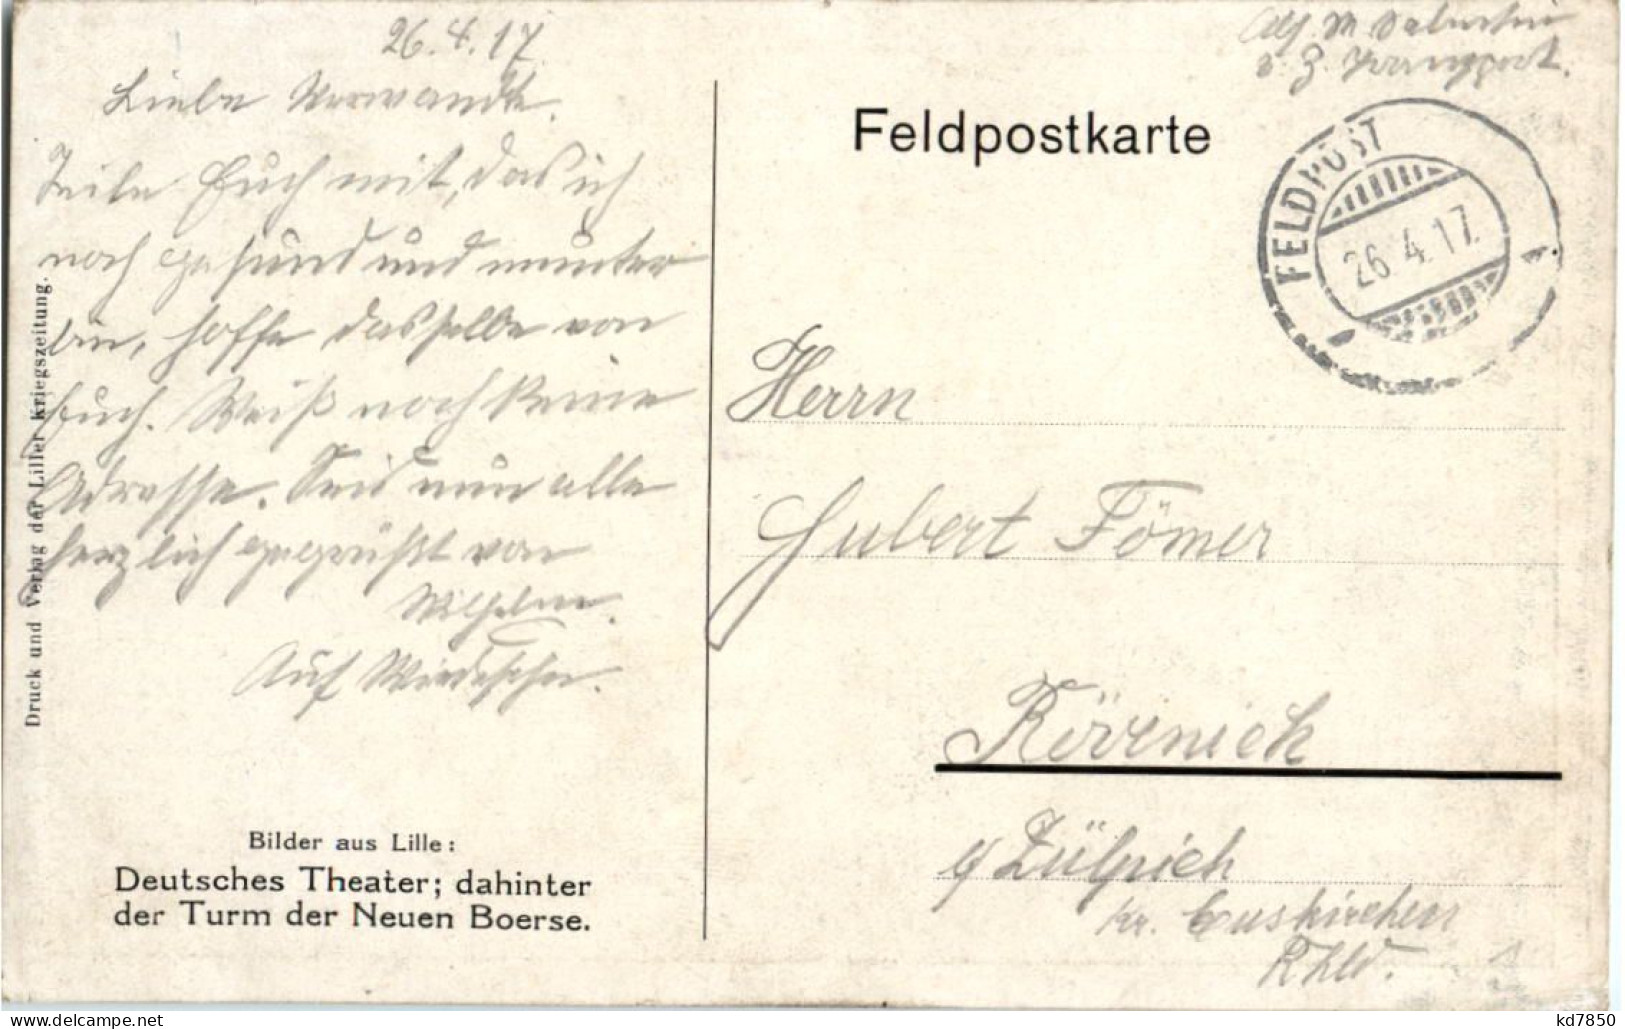 26.4.17.
Liebe Verwandte.
Teile Euch mit, das ich
noch gesund und munter
bin, hoffe dasselbe von
Euch. Weiß noch keine
Adresse. Seid nun alle
herzlich gegrüßt von
Wilhelm.
Auf Wiedersehn.
Bilder aus Lille:
Deutsches Theater; dahinter
der Turm der Neuen Boerse.
Druck und Verlag der Liller Kriegszeitung.
z. Z. Transport.
Feldpostkarte
FELDPOST
26.4.17.
Herrn
Hubert Fömer
Rövenich
b/ Zülpich
Kr. Euskirchen
Rhld.
delcampe.net
kd7850